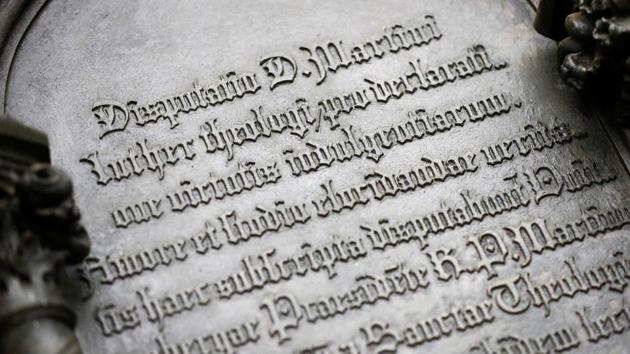 Disputatio D. Martini
Luther theologi/pro declarati-
one virtutis indulgentiarum.
Amore et studio elucidandae verita-
tis haec subscripta disputabunt
bergae Praesidēte R. P. Martino
Sanctae Theologi